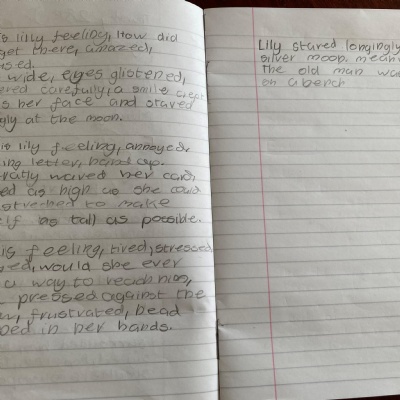 is lily feeling, How did
get there, amazed,
wide, eyes glistened,
carefully, a smile crept
s her face and stared
gly at the moon.
is lily feeling, annoyed,
ing letter,
waved her card,
as high as she could
to make
elf as tall as possible.
is feeling, tired, stressed,
would she ever
a way to reach him,
pressed against the
frustrated, head
in her hands.
Lily stared longingly
silver moon, mean
The old man wa
on a bench